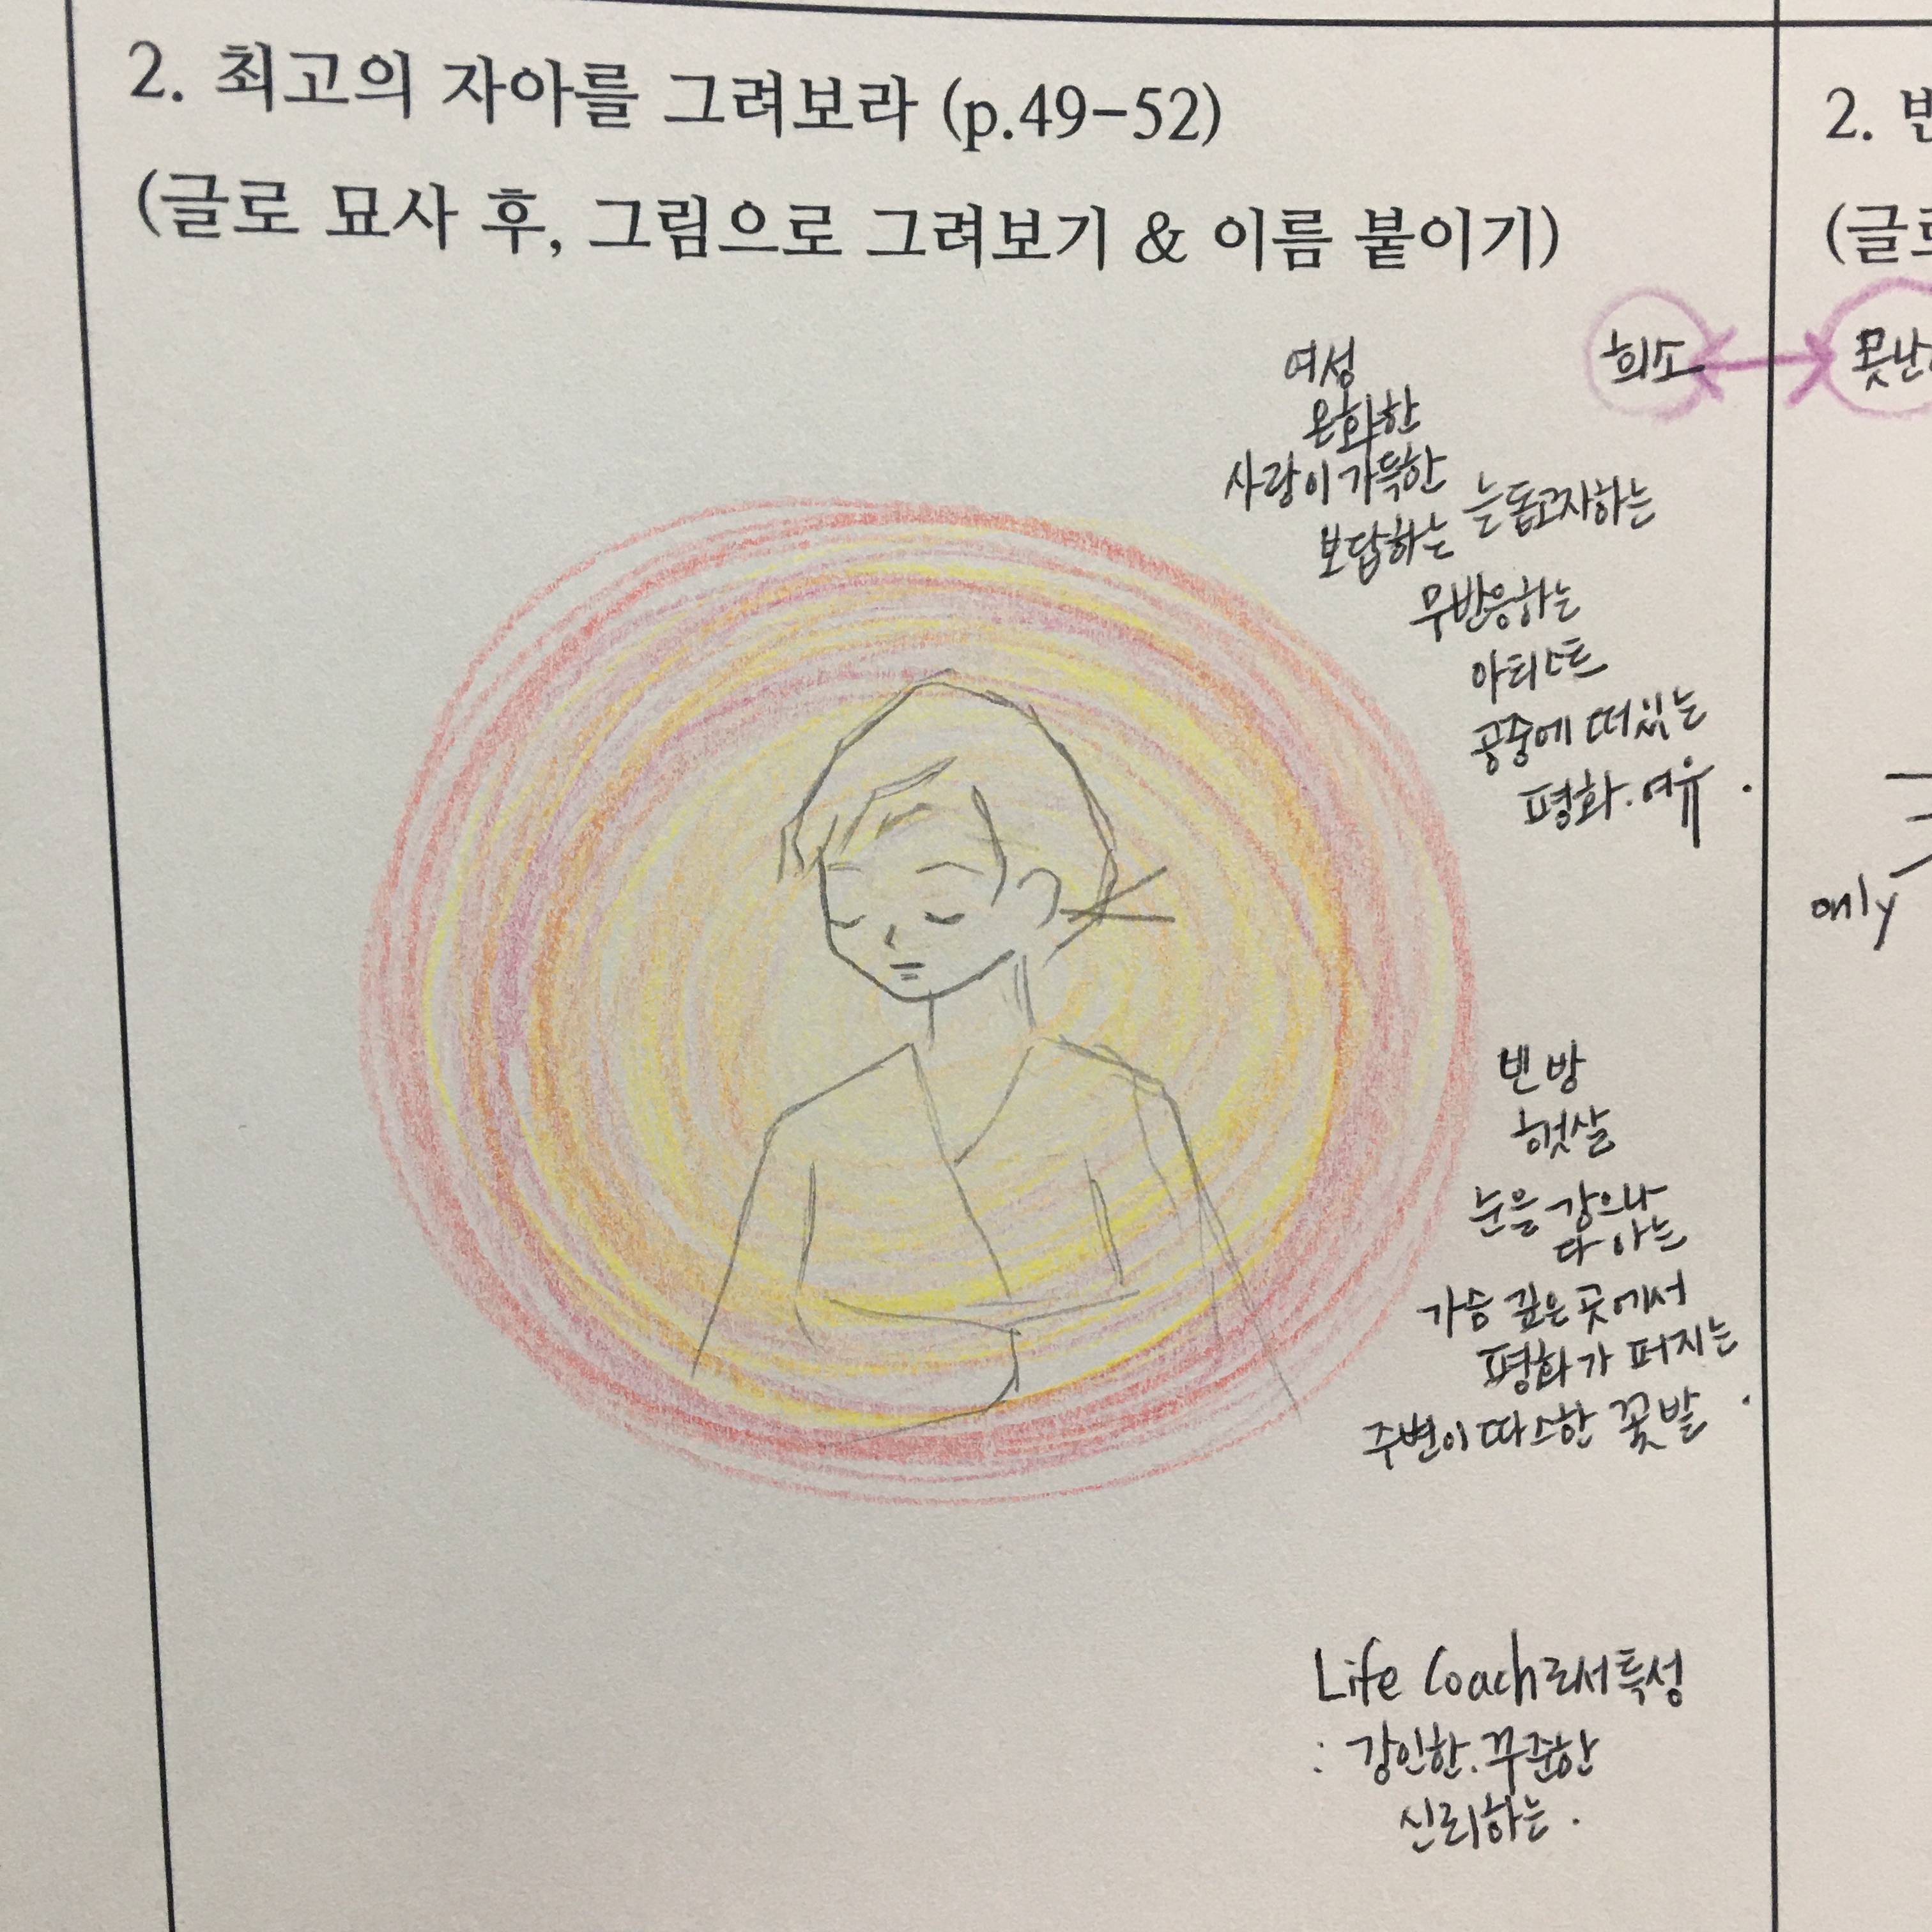 2. 최고의 자아를 그려보라 (p.49-52)
(글로 묘사 후, 그림으로 그려보기 & 이름 붙이기)
희소
여성
온화한
사랑이 가득한
보답하는 는 돕고자하는
무반응하는
아티스트
공중에 떠있는
평화.여유.
빈 방
햇살
눈을 감으나
다 아는
가슴 깊은 곳에서
평화가 퍼지는
주변이 따스한 꽃밭.
Life Coach로서 특성
: 강인한.꾸준한
신뢰하는.
2.
(글로
못난